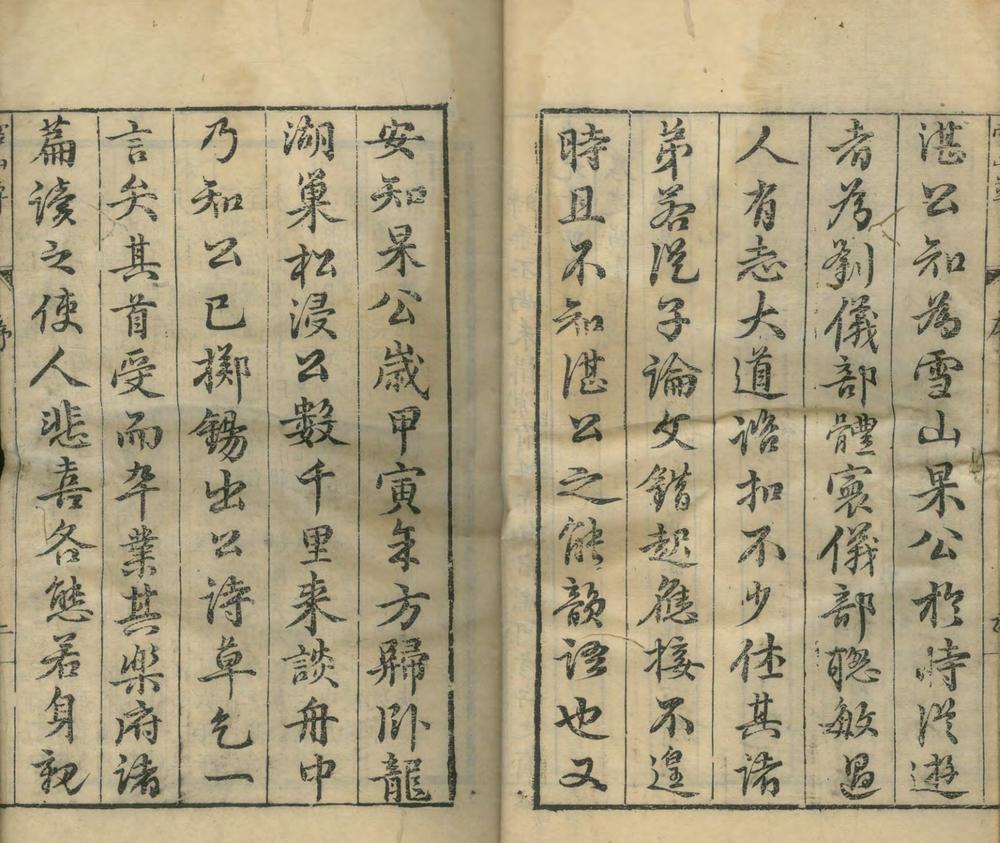 湛公知為雪山果公於時從遊
者為劉儀部體寰儀部聰敏過
人有志大道諮扣不少佳其諸
弟若從子論文錯起應接不遑
時且不知湛公之能韻語也又
安知杲公歲甲寅年方歸卧龍
湖巢松浸公數千里来談舟中
乃知公已擲錫出公詩草乞一
言矣其首受而卒業其樂府諸
篇讀之使人悲喜各態若身親